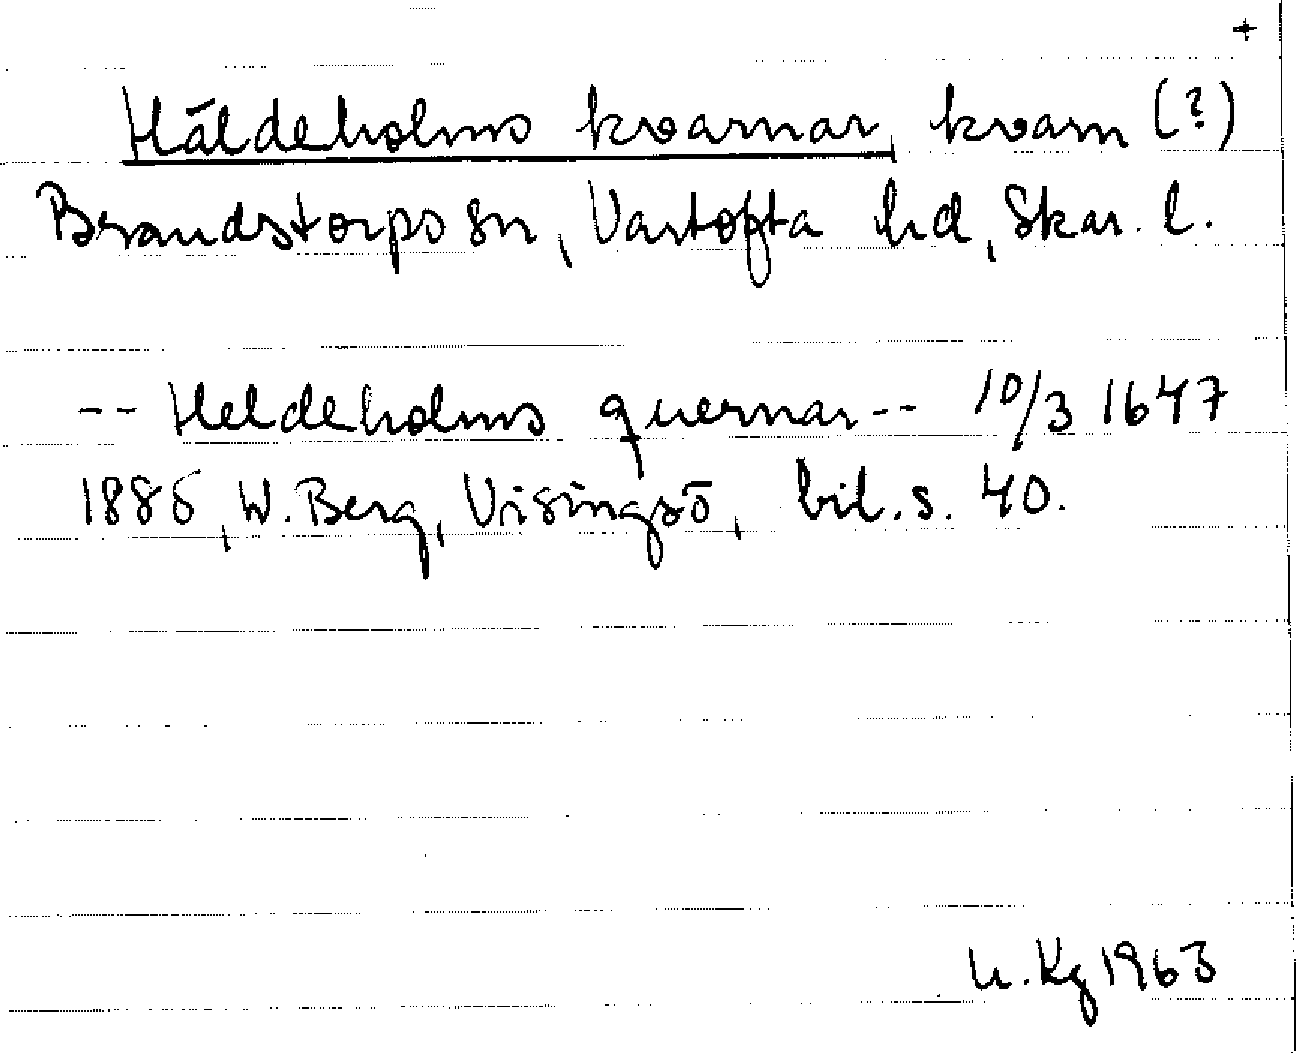 +
Häldeholms kvarnar, kvarn (?)
Brandstorps sn, Vartofta hd, Skar. l.
-- Heldeholms quernar -- 10/3 1647
1885, W. Berg, Visingsö, bil. s. 40.
U. Kg 1963